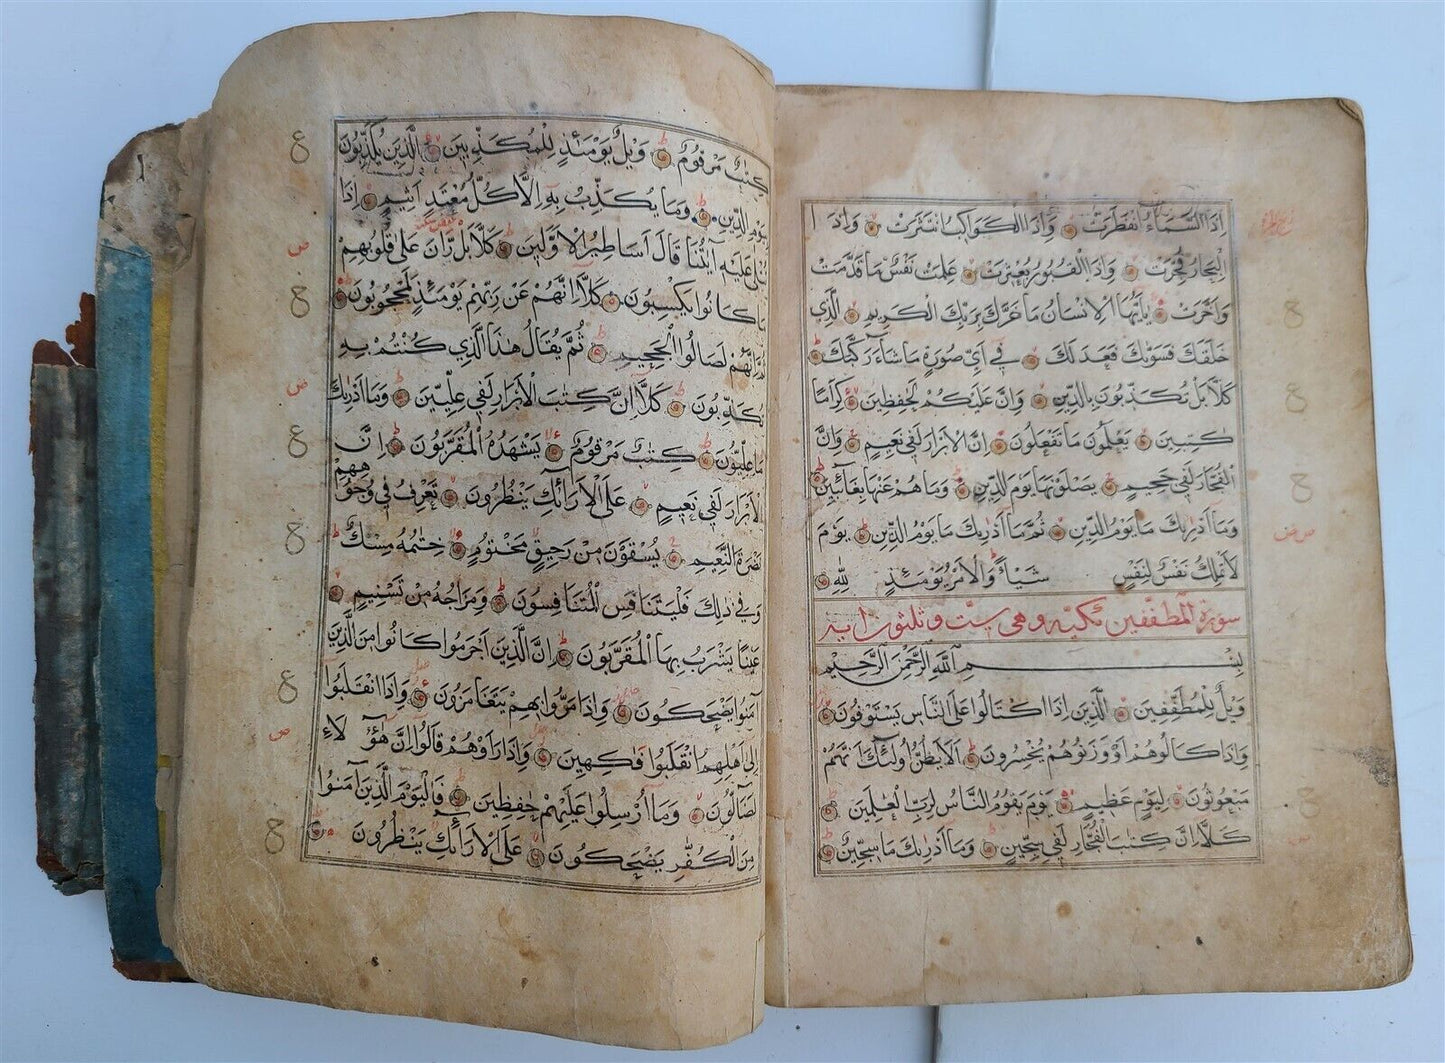 اِذَا السَّمَاءُ انْفَطَرَتْ وَاِذَا الْكَوَاكِبُ انْتَثَرَتْ وَاِذَا ا
لْبِحَارُ فُجِّرَتْ وَاِذَا الْقُبُورُ بُعْثِرَتْ عَلِمَتْ نَفْسٌ مَا قَدَّمَتْ
وَاَخَّرَتْ يٰاَيُّهَا الْاِنْسَانُ مَا غَرَّكَ بِرَبِّكَ الْكَرِيمِ الَّذِي
خَلَقَكَ فَسَوّٰيكَ فَعَدَلَكَ فِي اَيِّ صُورَةٍ مَا شَاءَ رَكَّبَكَ
كَلَّا بَلْ تُكَذِّبُونَ بِالدِّينِ وَاِنَّ عَلَيْكُمْ لَحٰفِظِينَ كِرَامًا
كٰتِبِينَ يَعْلَمُونَ مَا تَفْعَلُونَ اِنَّ الْاَبْرَارَ لَفِي نَعِيمٍ وَاِنَّ
الْفُجَّارَ لَفِي جَحِيمٍ يَصْلَوْنَهَا يَوْمَ الدِّينِ وَمَا هُمْ عَنْهَا بِغَائِبِينَ
وَمَا اَدْرٰيكَ مَا يَوْمُ الدِّينِ ثُمَّ مَا اَدْرٰيكَ مَا يَوْمُ الدِّينِ يَوْمَ
لَا تَمْلِكُ نَفْسٌ لِنَفْسٍ شَيْـًٔا وَالْاَمْرُ يَوْمَئِذٍ لِلّٰهِ
سورة المطففين مكيه وهى ست وثلثون آيه
بِسْمِ اللّٰهِ الرَّحْمٰنِ الرَّحِيمِ
وَيْلٌ لِلْمُطَفِّفِينَ الَّذِينَ اِذَا اكْتَالُوا عَلَى النَّاسِ يَسْتَوْفُونَ
وَاِذَا كَالُوهُمْ اَوْ وَزَنُوهُمْ يُخْسِرُونَ اَلَا يَظُنُّ اُولٰئِكَ اَنَّهُمْ
مَبْعُوثُونَ لِيَوْمٍ عَظِيمٍ يَوْمَ يَقُومُ النَّاسُ لِرَبِّ الْعٰلَمِينَ
كَلَّا اِنَّ كِتٰبَ الْفُجَّارِ لَفِي سِجِّينٍ وَمَا اَدْرٰيكَ مَا سِجِّينٌ
كِتٰبٌ مَرْقُومٌ وَيْلٌ يَوْمَئِذٍ لِلْمُكَذِّبِينَ الَّذِينَ يُكَذِّبُونَ
بِيَوْمِ الدِّينِ وَمَا يُكَذِّبُ بِهِ اِلَّا كُلُّ مُعْتَدٍ اَثِيمٍ اِذَا
تُتْلٰى عَلَيْهِ اٰيٰتُنَا قَالَ اَسَاطِيرُ الْاَوَّلِينَ كَلَّا بَلْ رَانَ عَلٰى قُلُوبِهِمْ
مَا كَانُوا يَكْسِبُونَ كَلَّا اِنَّهُمْ عَنْ رَبِّهِمْ يَوْمَئِذٍ لَمَحْجُوبُونَ
ثُمَّ اِنَّهُمْ لَصَالُوا الْجَحِيمِ ثُمَّ يُقَالُ هٰذَا الَّذِي كُنْتُمْ بِهِ
تُكَذِّبُونَ كَلَّا اِنَّ كِتٰبَ الْاَبْرَارِ لَفِي عِلِّيِّينَ وَمَا اَدْرٰيكَ
مَا عِلِّيُّونَ كِتٰبٌ مَرْقُومٌ يَشْهَدُهُ الْمُقَرَّبُونَ اِنَّ
الْاَبْرَارَ لَفِي نَعِيمٍ عَلَى الْاَرَائِكِ يَنْظُرُونَ تَعْرِفُ فِي وُجُوهِهِمْ
نَضْرَةَ النَّعِيمِ يُسْقَوْنَ مِنْ رَحِيقٍ مَخْتُومٍ خِتٰمُهُ مِسْكٌ
وَفِي ذٰلِكَ فَلْيَتَنَافَسِ الْمُتَنَافِسُونَ وَمِزَاجُهُ مِنْ تَسْنِيمٍ
عَيْنًا يَشْرَبُ بِهَا الْمُقَرَّبُونَ اِنَّ الَّذِينَ اَجْرَمُوا كَانُوا مِنَ الَّذِينَ
اٰمَنُوا يَضْحَكُونَ وَاِذَا مَرُّوا بِهِمْ يَتَغَامَزُونَ وَاِذَا انْقَلَبُوا
اِلٰى اَهْلِهِمُ انْقَلَبُوا فَاكِهِينَ وَاِذَا رَاَوْهُمْ قَالُوا اِنَّ هٰؤُلَاءِ
لَضَالُّونَ وَمَا اُرْسِلُوا عَلَيْهِمْ حٰفِظِينَ فَالْيَوْمَ الَّذِينَ اٰمَنُوا
مِنَ الْكُفَّارِ يَضْحَكُونَ عَلَى الْاَرَائِكِ يَنْظُرُونَ